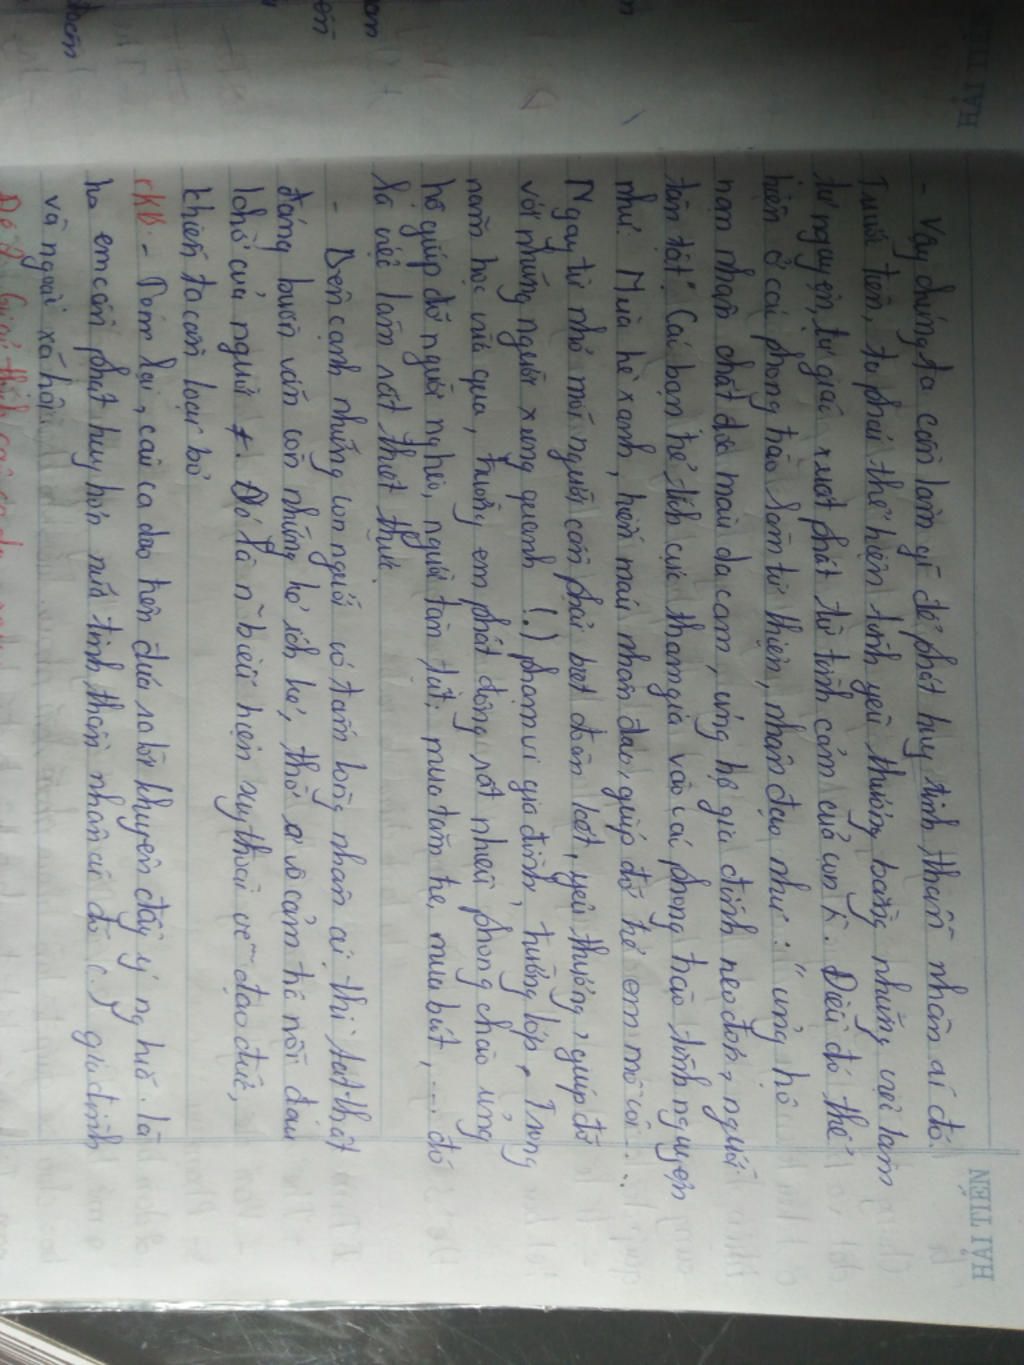 HẢI TIẾN
- Vậy chúng ta cần làm gì để phát huy tinh thần nhân ái đó.
Trước tiên, ta phải thể hiện tình yêu thương bằng những việc làm
tự nguyện, tự giác xuất phát từ tình cảm của con ng. Điều đó thể
hiện ở các phong trào làm từ thiện, nhân đạo như: "ủng hộ
nạn nhân chất độc màu da cam, ủng hộ gia đình neo đơn, người
tàn tật" Các bạn trẻ tích cực tham gia vào các phong trào tình nguyện
như: Mùa hè xanh, hiến máu nhân đạo, giúp đỡ trẻ em mồ côi...
Ngay từ nhỏ mỗi người cần phải biết đoàn kết, yêu thương, giúp đỡ
với những người xung quanh (.) phạm vi gia đình, trường lớp. Trong
năm học vừa qua, trường em phát động rất nhiều phong chào ủng
hộ giúp đỡ người nghèo, người tàn tật, mua tăm tre, mua bút, .... đó
là việc làm rất thiết thực.
- Bên cạnh những con người có tấm lòng nhân ái thì thật
đáng buồn vẫn còn những kẻ ích kỉ, thờ ơ vô cảm trc nỗi đau
khổ của người ≠. Đó là n~ biểu hiện suy thoái về đạo đức,
khiến ta cần loại bỏ
*KB: - Tóm lại, câu ca dao trên đưa ra lời khuyên đầy ý nghĩa. Là
hs em cần phát huy hơn nữa tinh thần nhân ái đó (.) gia đình
và ngoài xã hội
HẢI